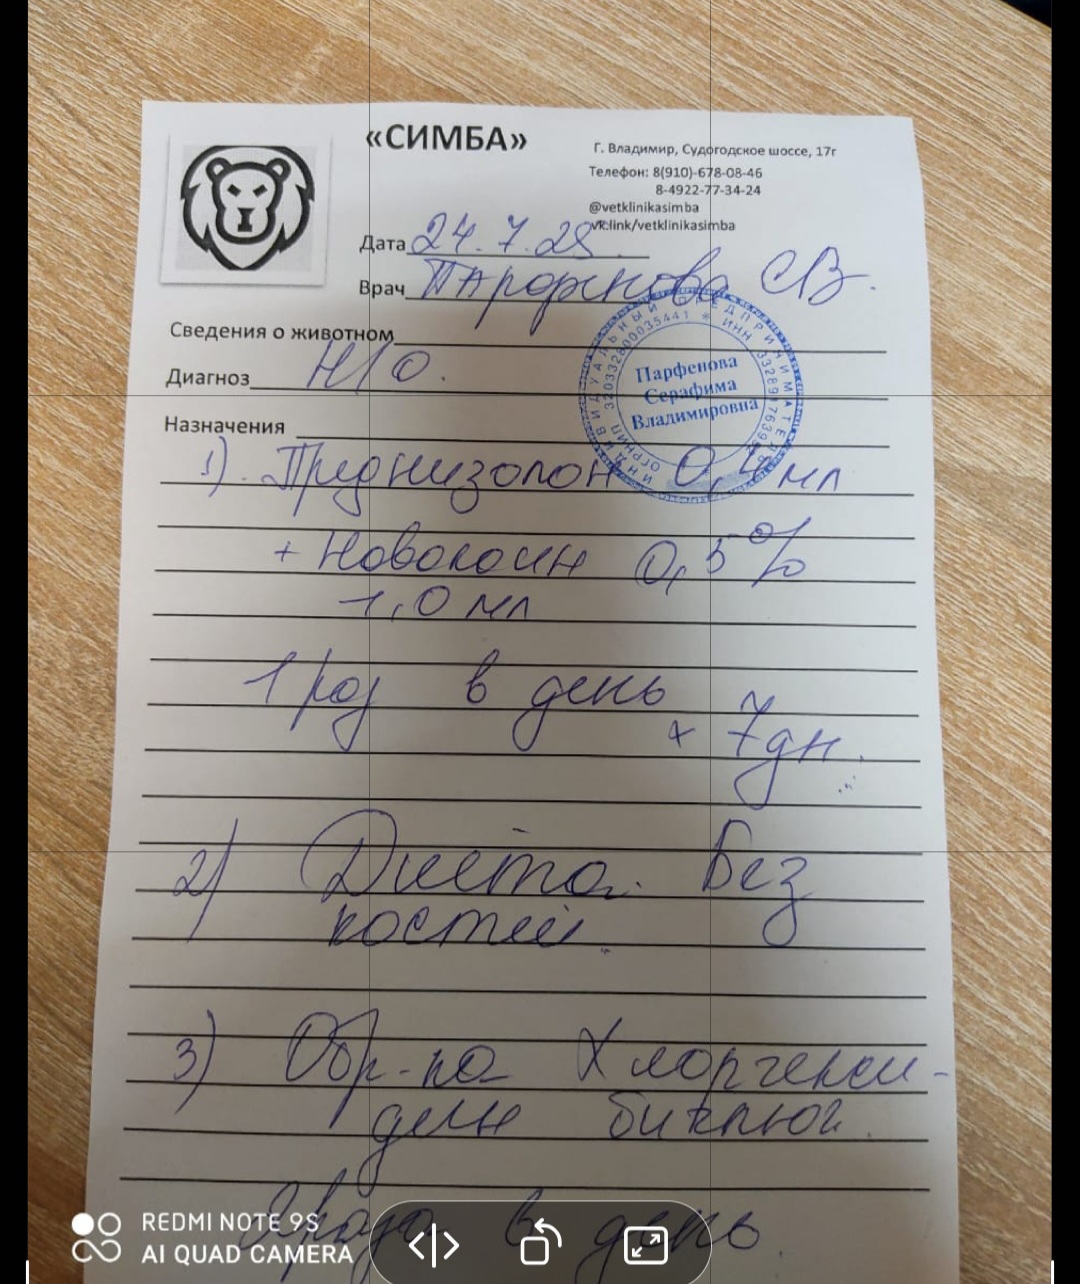 «СИМБА»
Г. Владимир, Судогодское шоссе, 17г
Телефон: 8(910)-678-08-46
8-4922-77-34-24
@vetklinikasimba
vk.link/vetklinikasimba
Дата 24.7.25
Врач Парфенова С.В.
Сведения о животном
Диагноз Н/О.
Назначения
ИНДИВИДУАЛЬНЫЙ ПРЕДПРИНИМАТЕЛЬ
Парфенова
Серафима
Владимировна
1). Преднизолон 0,4 мл
+ Новокаин 0,5%
1,0 мл
1 раз в день
x 7 дн.
2) Диета. Без
костей.
3) Обр-ка Хлоргекси-
дин биглюк.
раза в день.
REDMI NOTE 9S
AI QUAD CAMERA